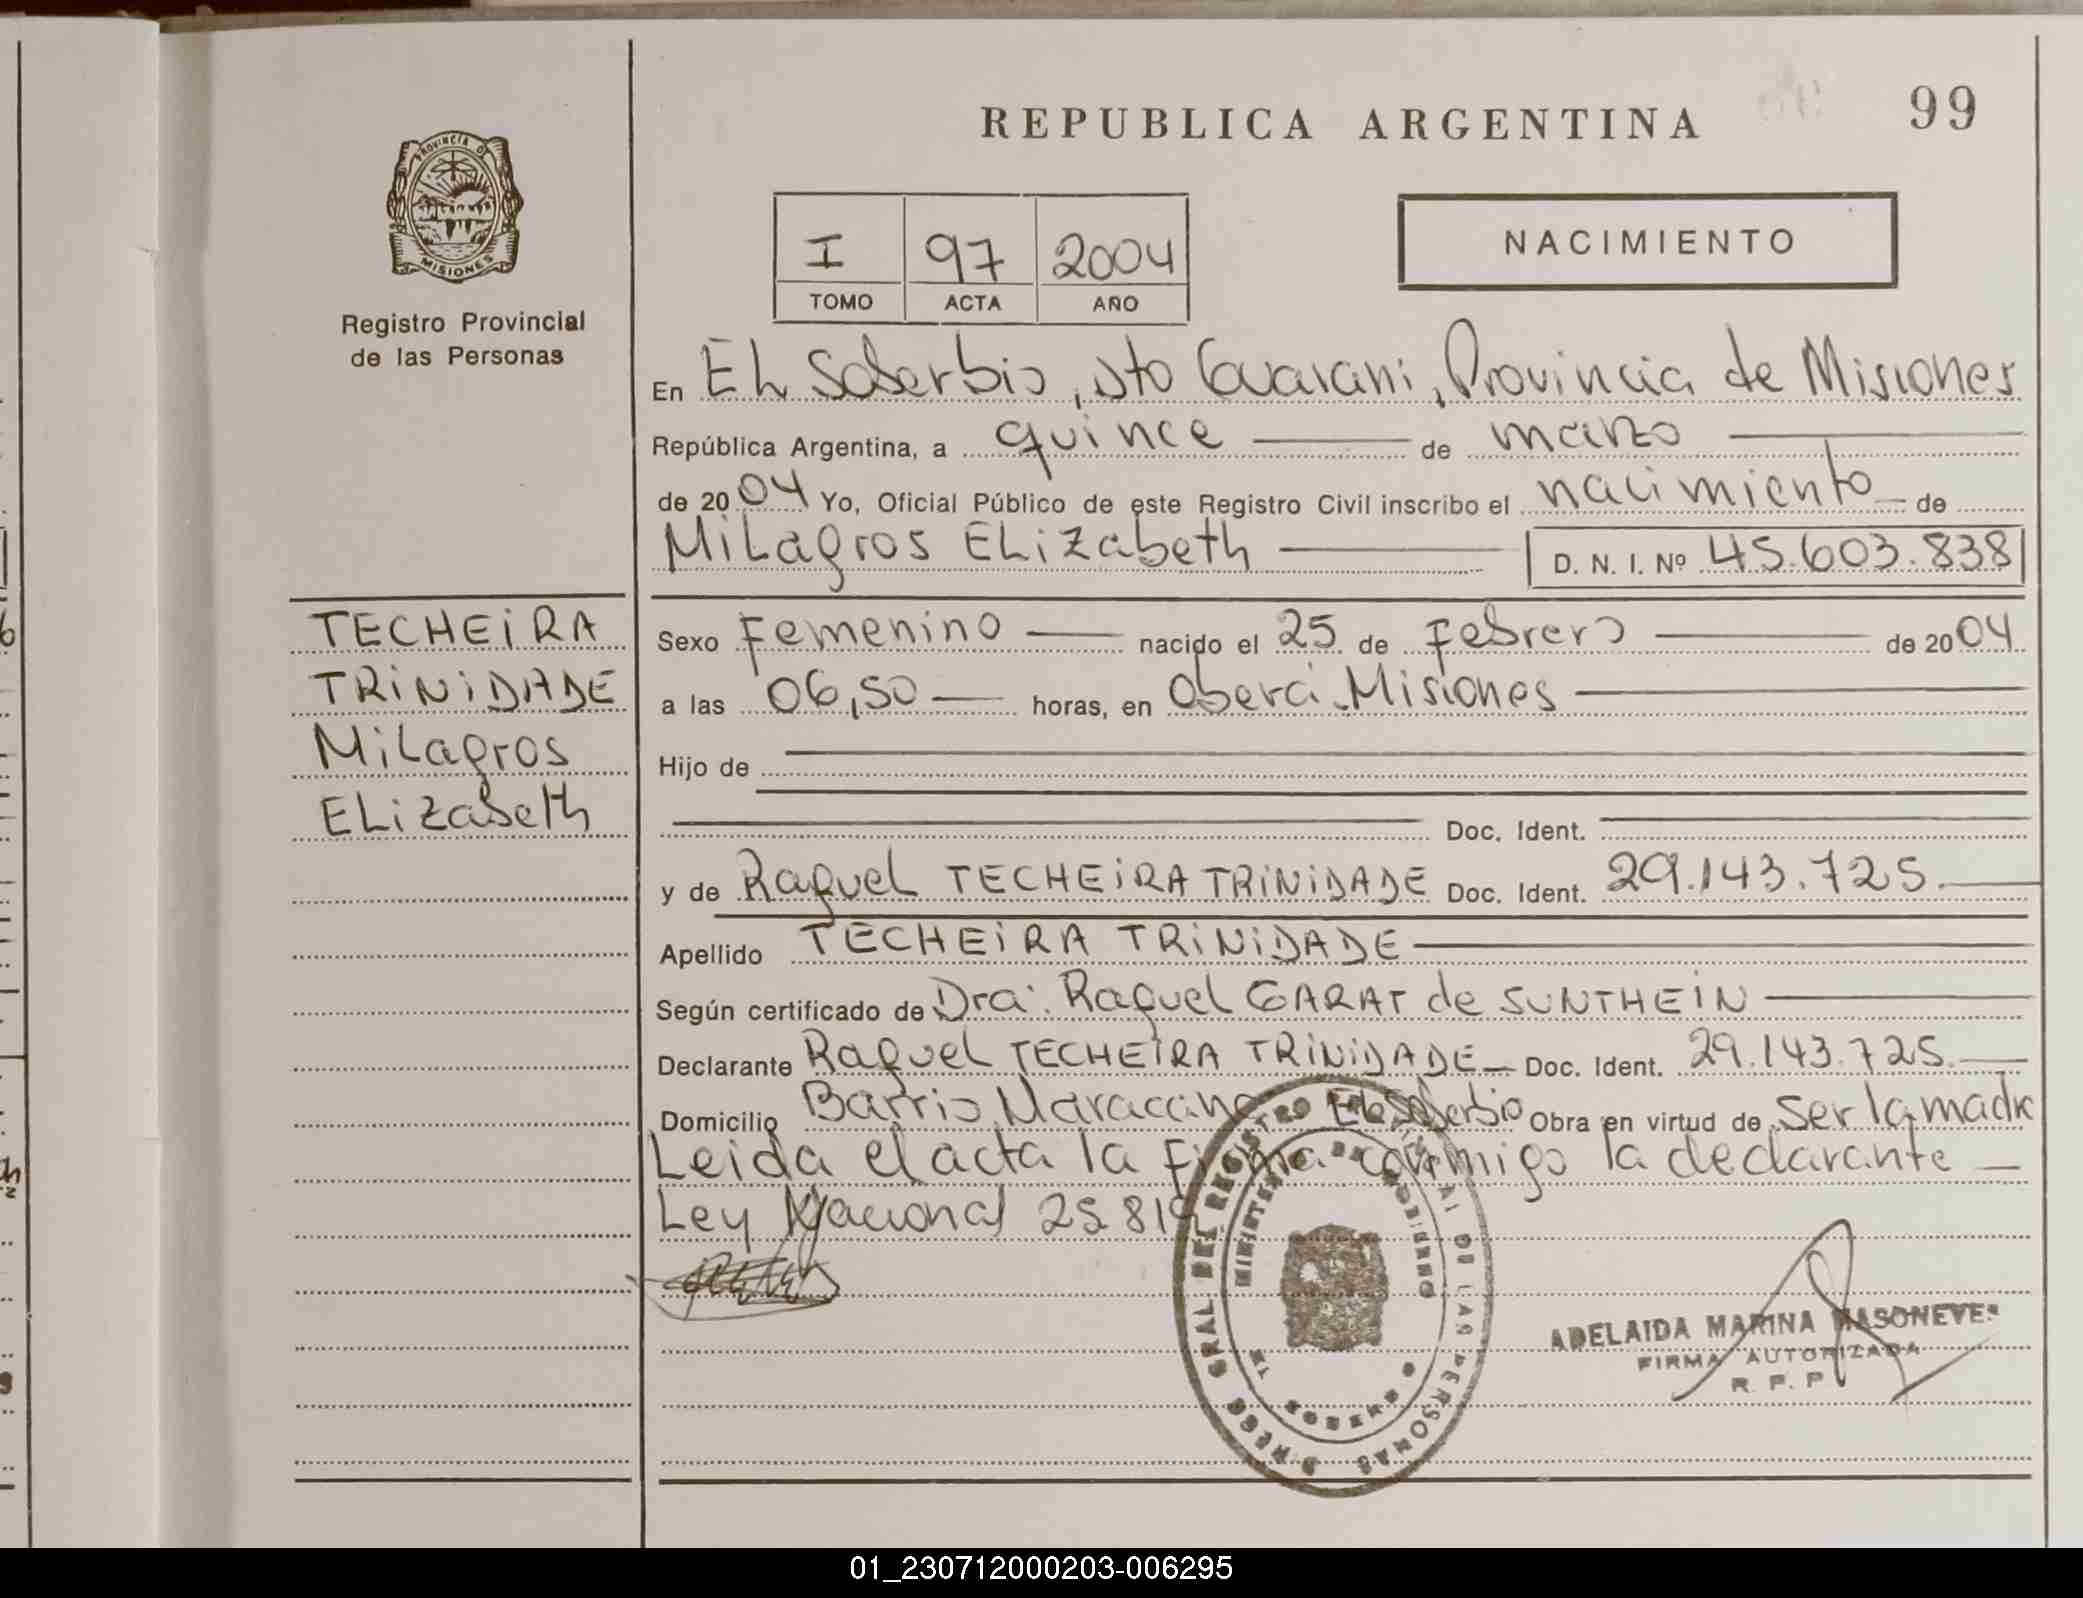 REPUBLICA ARGENTINA
99
PROVINCIA DE
MISIONES
Registro Provincial
de las Personas
I 97 2004
TOMO ACTA AÑO
NACIMIENTO
En El Soberbio, Dto Guarani, Provincia de Misiones
República Argentina, a quince de marzo
de 2004 Yo, Oficial Público de este Registro Civil inscribo el nacimiento de
Milagros Elizabeth D. N. I. Nº 45.603.838
TECHEIRA
TRINIDADE
Milagros
Elizabeth
Sexo Femenino nacido el 25 de Febrero de 2004
a las 06,50 horas, en Oberá Misiones
Hijo de
Doc. Ident.
y de Raquel TECHEIRA TRINIDADE Doc. Ident. 29.143.725.
Apellido TECHEIRA TRINIDADE
Según certificado de Dra: Raquel GARAT de SUNTHEIN
Declarante Raquel TECHEIRA TRINIDADE Doc. Ident. 29.143.725.
Domicilio Barrio Maracana El Soberbio Obra en virtud de ser la madre
Leida el acta la Firma conmigo la declarante
Ley Nacional 25.819
GRAL DEL REGISTRO PROVINCIAL DE LAS PERSONAS
MINISTERIO DE GOBIERNO
EL SOBERBIO
ADELAIDA MARINA
FIRMA AUTORIZADA
R. P. P
01_230712000203-006295